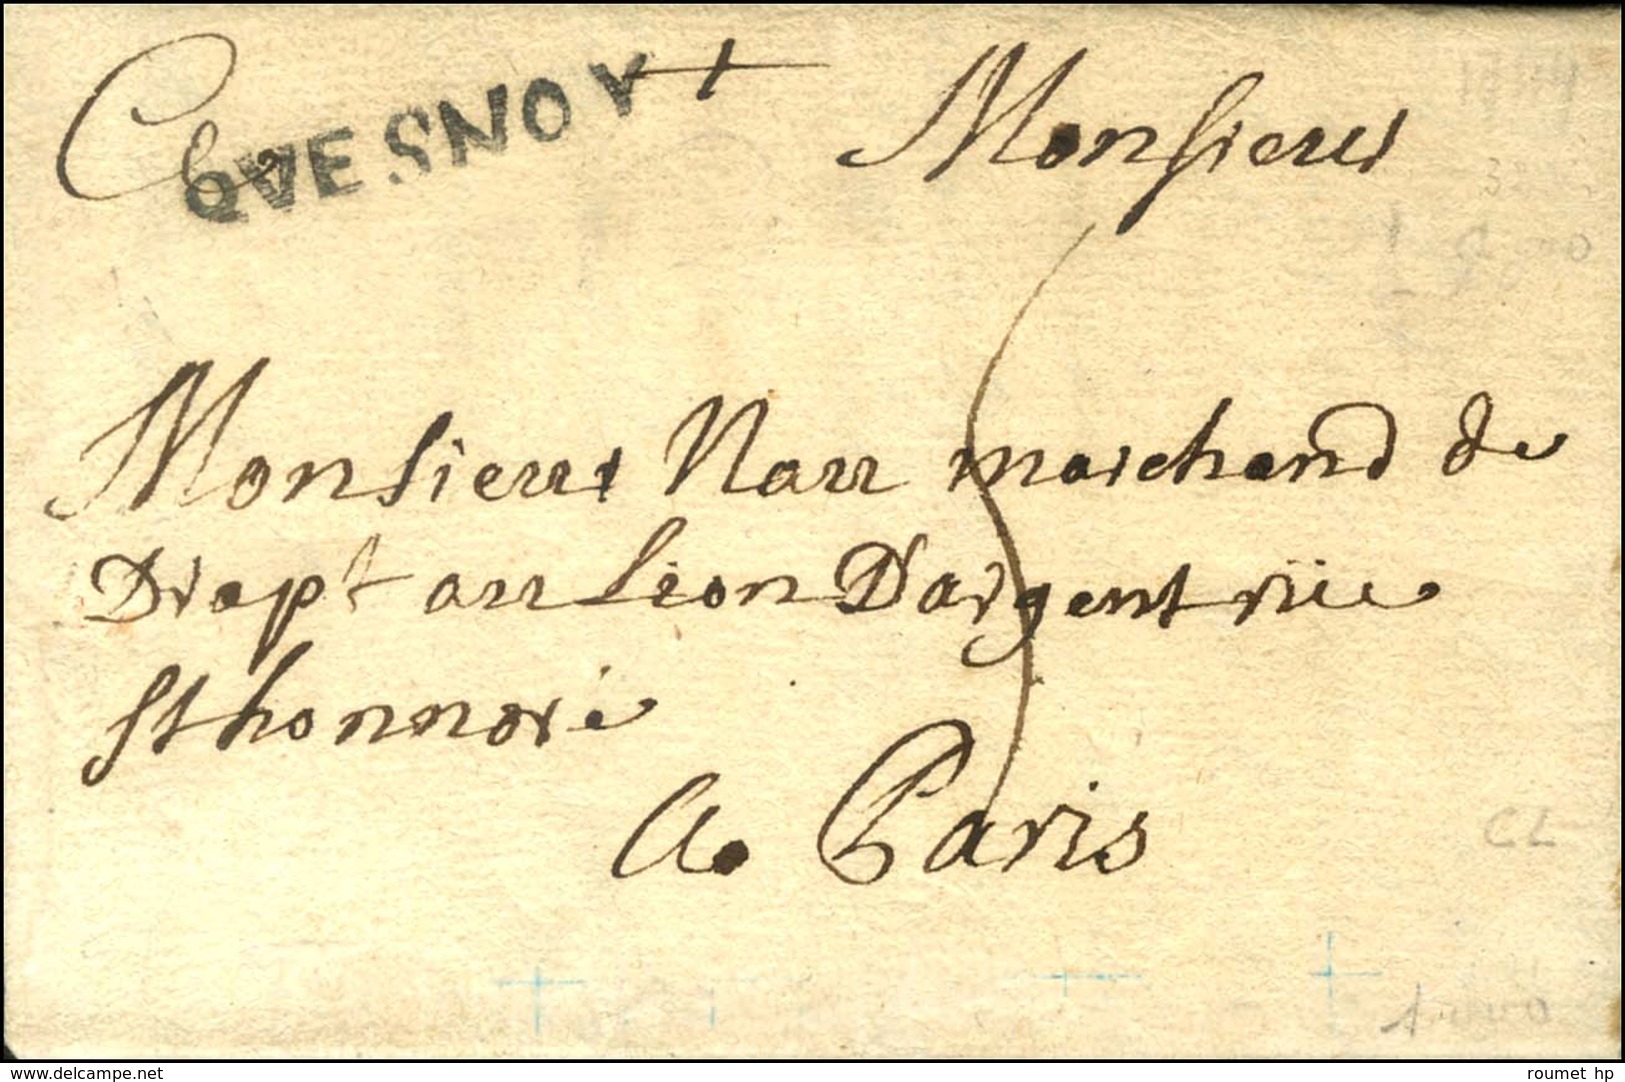 QVESNOY
Monsieur
Monsieur Nau marchand de
Drapt au Lion D'argent rüe
St honnoré
A Paris
CL
delcampe.net
roumet hp